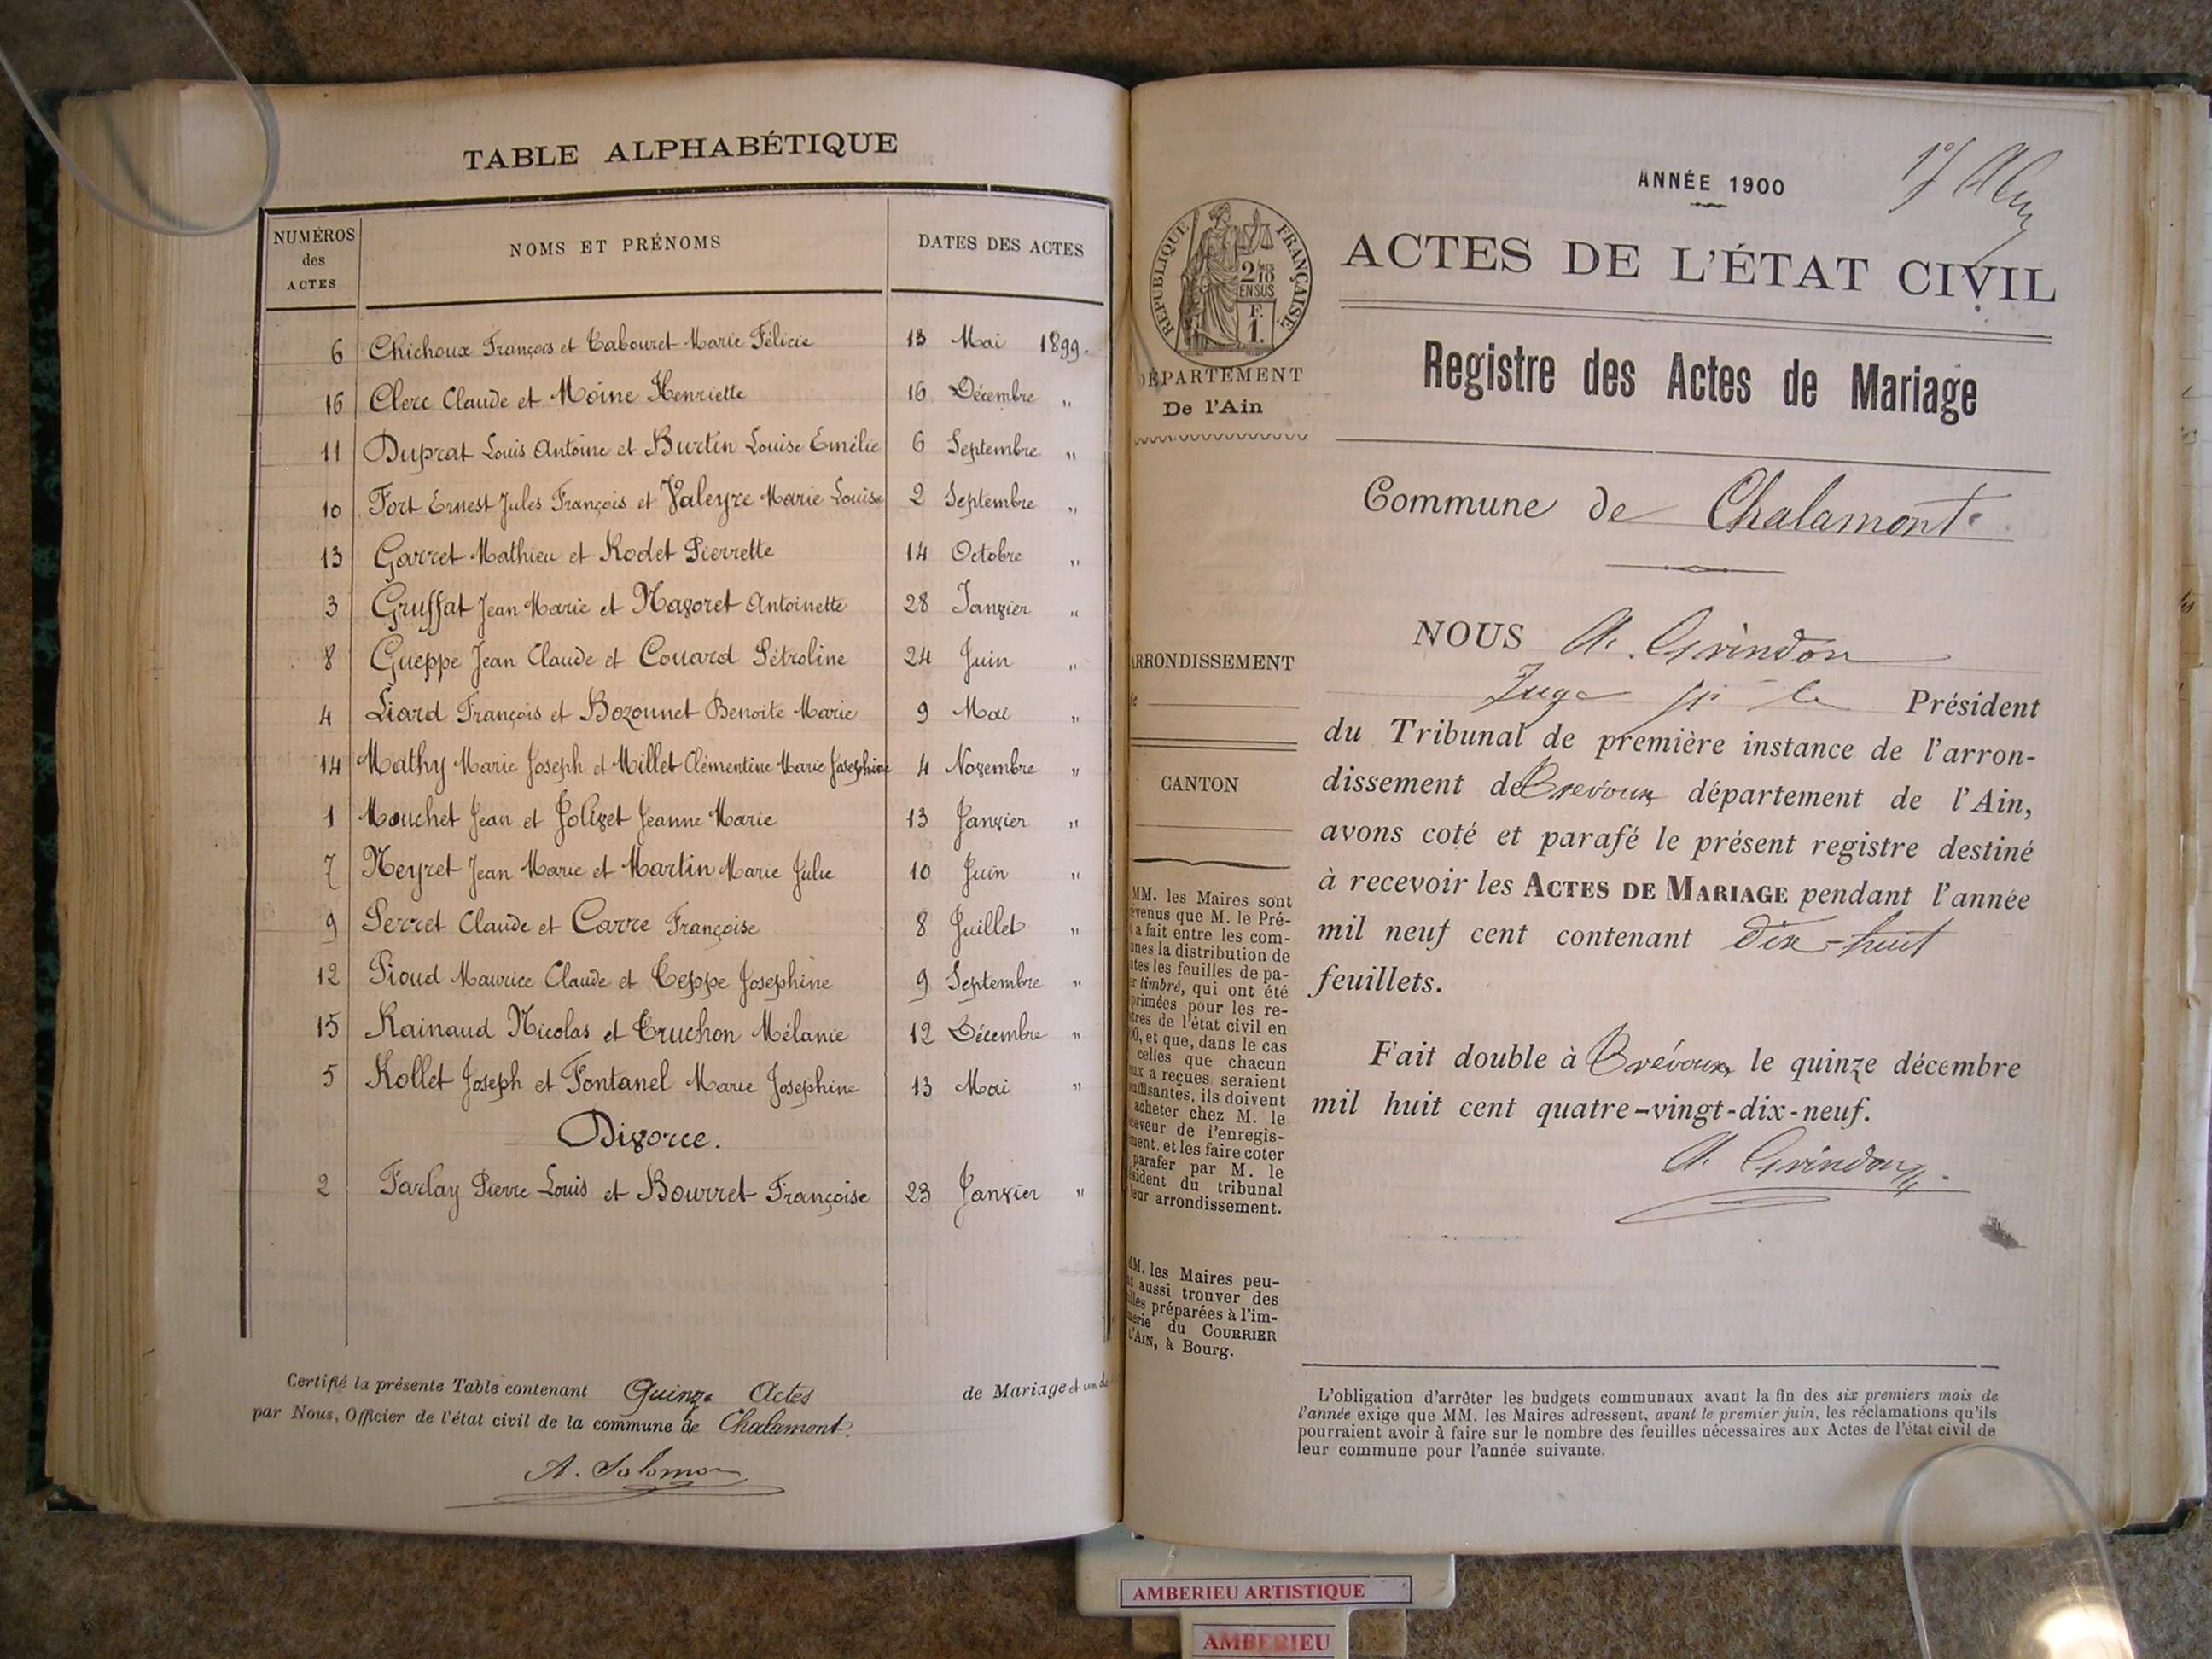 TABLE ALPHABÉTIQUE
NUMÉROS des ACTES
NOMS ET PRÉNOMS
DATES DES ACTES
6 Chichoux François et Tabouret Marie Félicie 13 Mai 1899.
16 Clerc Claude et Moine Henriette 16 Décembre "
11 Duprat Louis Antoine et Burtin Louise Emélie 6 Septembre "
10 Fort Ernest Jules François et Valeyre Marie Louise 2 Septembre "
13 Garret Mathieu et Rodet Pierrette 14 Octobre "
3 Gruffat Jean Marie et Navoret Antoinette 28 Janvier "
8 Gueppe Jean Claude et Couard Pétroline 24 Juin "
4 Liard François et Bozonnet Benoite Marie 9 Mai "
14 Mathy Marie Joseph et Millet Clémentine Marie Josephine 4 Novembre "
1 Mouchet Jean et Jolivet Jeanne Marie 13 Janvier "
7 Neyret Jean Marie et Martin Marie Julie 10 Juin "
9 Perret Claude et Carre Françoise 8 Juillet "
12 Pioud Maurice Claude et Teppe Josephine 9 Septembre "
15 Rainaud Nicolas et Truchon Mélanie 12 Décembre "
5 Rollet Joseph et Fontanel Marie Josephine 13 Mai "
Divorce.
2 Farlay Pierre Louis et Bourret Françoise 23 Janvier "
Certifié la présente Table contenant Quinze Actes de Mariage et un
par Nous, Officier de l'état civil de la commune de Chalamont.
A. Salomon
ANNÉE 1900
ACTES DE L'ÉTAT CIVIL
RÉPUBLIQUE FRANÇAISE
2/10 EN SUS
F. 1.
DÉPARTEMENT
De l'Ain
Registre des Actes de Mariage
Commune de Chalamont
ARRONDISSEMENT
CANTON
MM. les Maires sont
a fait entre les com-
la distribution de
les feuilles de pa-
timbré, qui ont été
pour les re-
de l'état civil en
et que, dans le cas
celles que chacun
a reçues seraient
ils doivent
acheter chez M. le
de l'enregis-
et les faire coter
parafer par M. le
du tribunal
leur arrondissement.
MM. les Maires peu-
aussi trouver des
préparées à l'im-
du COURRIER
L'AIN, à Bourg.
NOUS A. Grindon
Juge pr le Président
du Tribunal de première instance de l'arron-
dissement de Trévoux département de l'Ain,
avons coté et parafé le présent registre destiné
à recevoir les ACTES DE MARIAGE pendant l'année
mil neuf cent contenant dix-huit
feuillets.
Fait double à Trévoux, le quinze décembre
mil huit cent quatre-vingt-dix-neuf.
A. Grindon
L'obligation d'arrêter les budgets communaux avant la fin des six premiers mois de
l'année exige que MM. les Maires adressent, avant le premier juin, les réclamations qu'ils
pourraient avoir à faire sur le nombre des feuilles nécessaires aux Actes de l'état civil de
leur commune pour l'année suivante.
AMBERIEU ARTISTIQUE
AMBERIEU